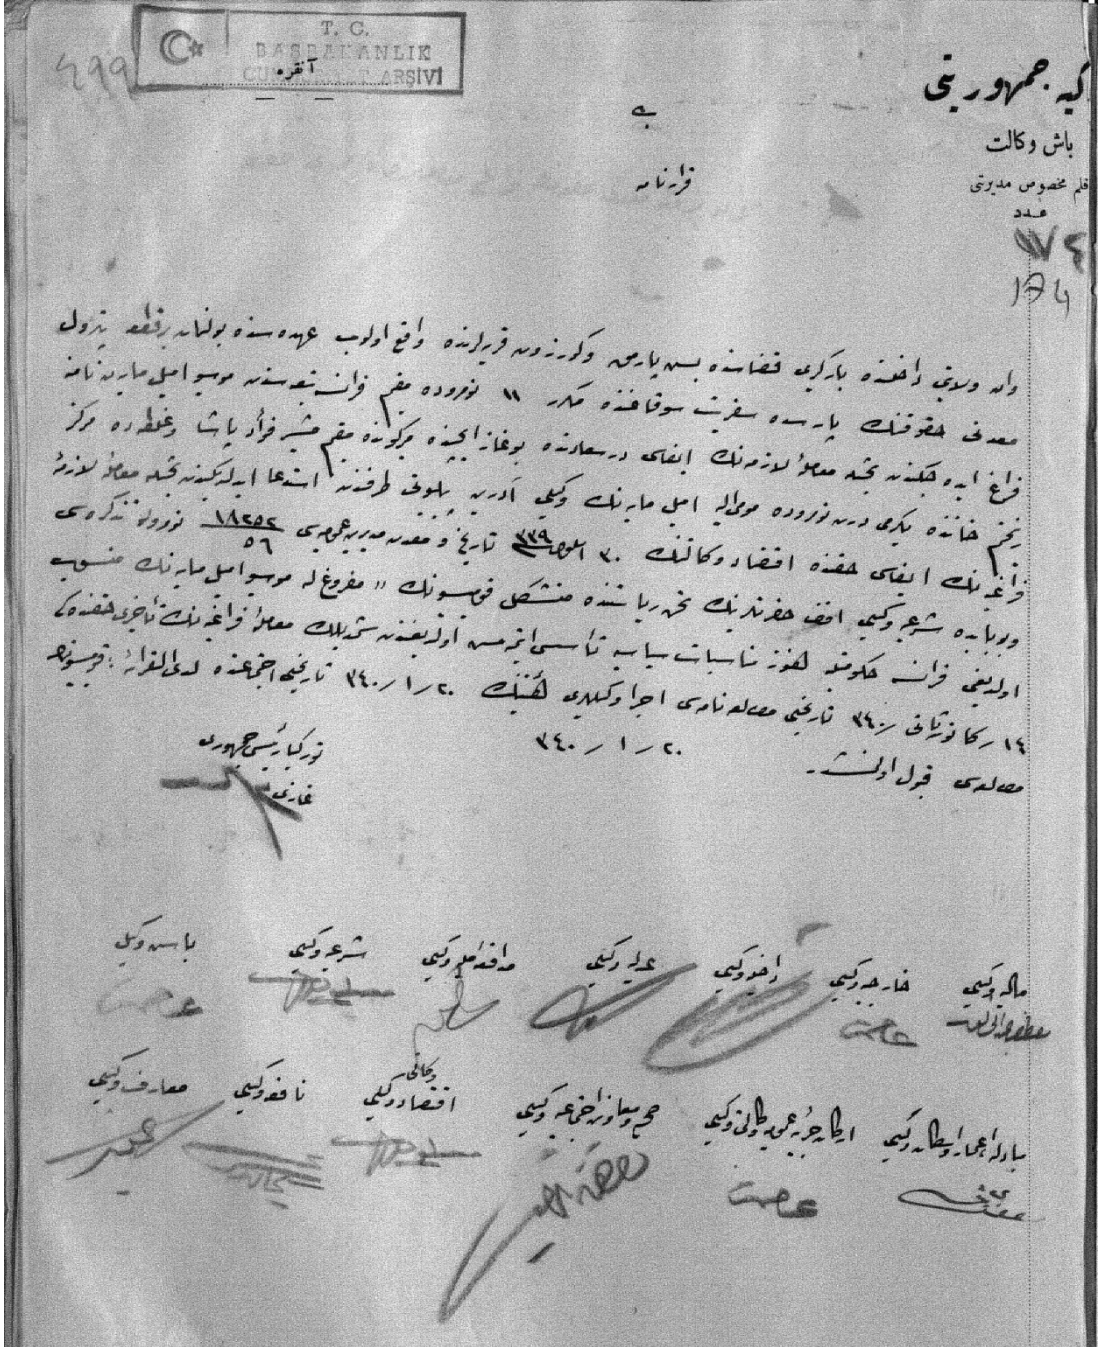 T. C.
BAŞBAKANLIK
CUMHURİYET ARŞİVİ
آنقره
٤٩٩
كيه جمهوريتی
باش وكالت
قلم مخصوص مديريتی
عدد
١٧٤
174
قرارنامه
وان ولايتی داخلنده باركيری قضاسنده وكورزوت قريه‌لرنده واقع اولوب عهده‌سنده بولنان برقطعه پترول
معدنی حقوقنك پارسده سوقاغنده مكرر ١١ نومروده مقيم فرانسه تبعه‌سندن موسيو اميل مارينامه
فراغ ايده‌جكندن بحثله معاملهٔ لازمه‌نك ايفاسی درسعادتده بوغاز ايچنده مقيم مشير فؤاد پاشا وغلطه‌ده مركز
ريختم خاننده يكرمی درت نوروده مومی‌اليه اميل وكيلی طرفندن استدعا ايدلديكندن بحثله معاملهٔ لازمهٔ
فراغيه‌نك ايفاسی حقنده اقتصاد وكالتنك ٣٠ ايلول ٣٣٩ تاريخ و معادن مديريت عموميه‌سی ١٨٢٥٢ / ٥٦ نورولو تذكره‌سی
وبوبابده شرعيه وكيلی افندی حضرتلرينك تحت رياستنده متشكل قوميسيونك " مفروغ له موسيو اميل منسوب
اولديغی فرانسه حكومتيله هنوز مناسبات سياسيه تأسس ايتمه‌مش اولديغندن شمديلك معاملهٔ فراغيه‌نك تأخيری حقنده‌كی
١٤ / كانون ثانی / ٣٤٠ تاريخلی مضبطه‌نامه‌سی اجرا وكيللری هيئتنك ٢٠ / ١ / ٣٤٠ تاريخلی اجتماعنده لدی القرائه قوميسيون
مضبطه‌سی قبول اولنمشدر.
٢٠ / ١ / ٣٤٠
توركيا رئيس جمهوری
غازی
باش وكيل
شرعيه وكيلی
مدافعهٔ مليه وكيلی
عدليه وكيلی
داخليه وكيلی
خارجيه وكيلی
ماليه وكيلی
عصمت
عصمت
معارف وكيلی
نافعه وكيلی
اقتصاد وكالتی وكيلی
صحيه ومعاونت اجتماعيه وكيلی
اركان حربيهٔ عموميه وكالتی وكيلی
مبادله اعمار واسكان وكيلی
عصمت